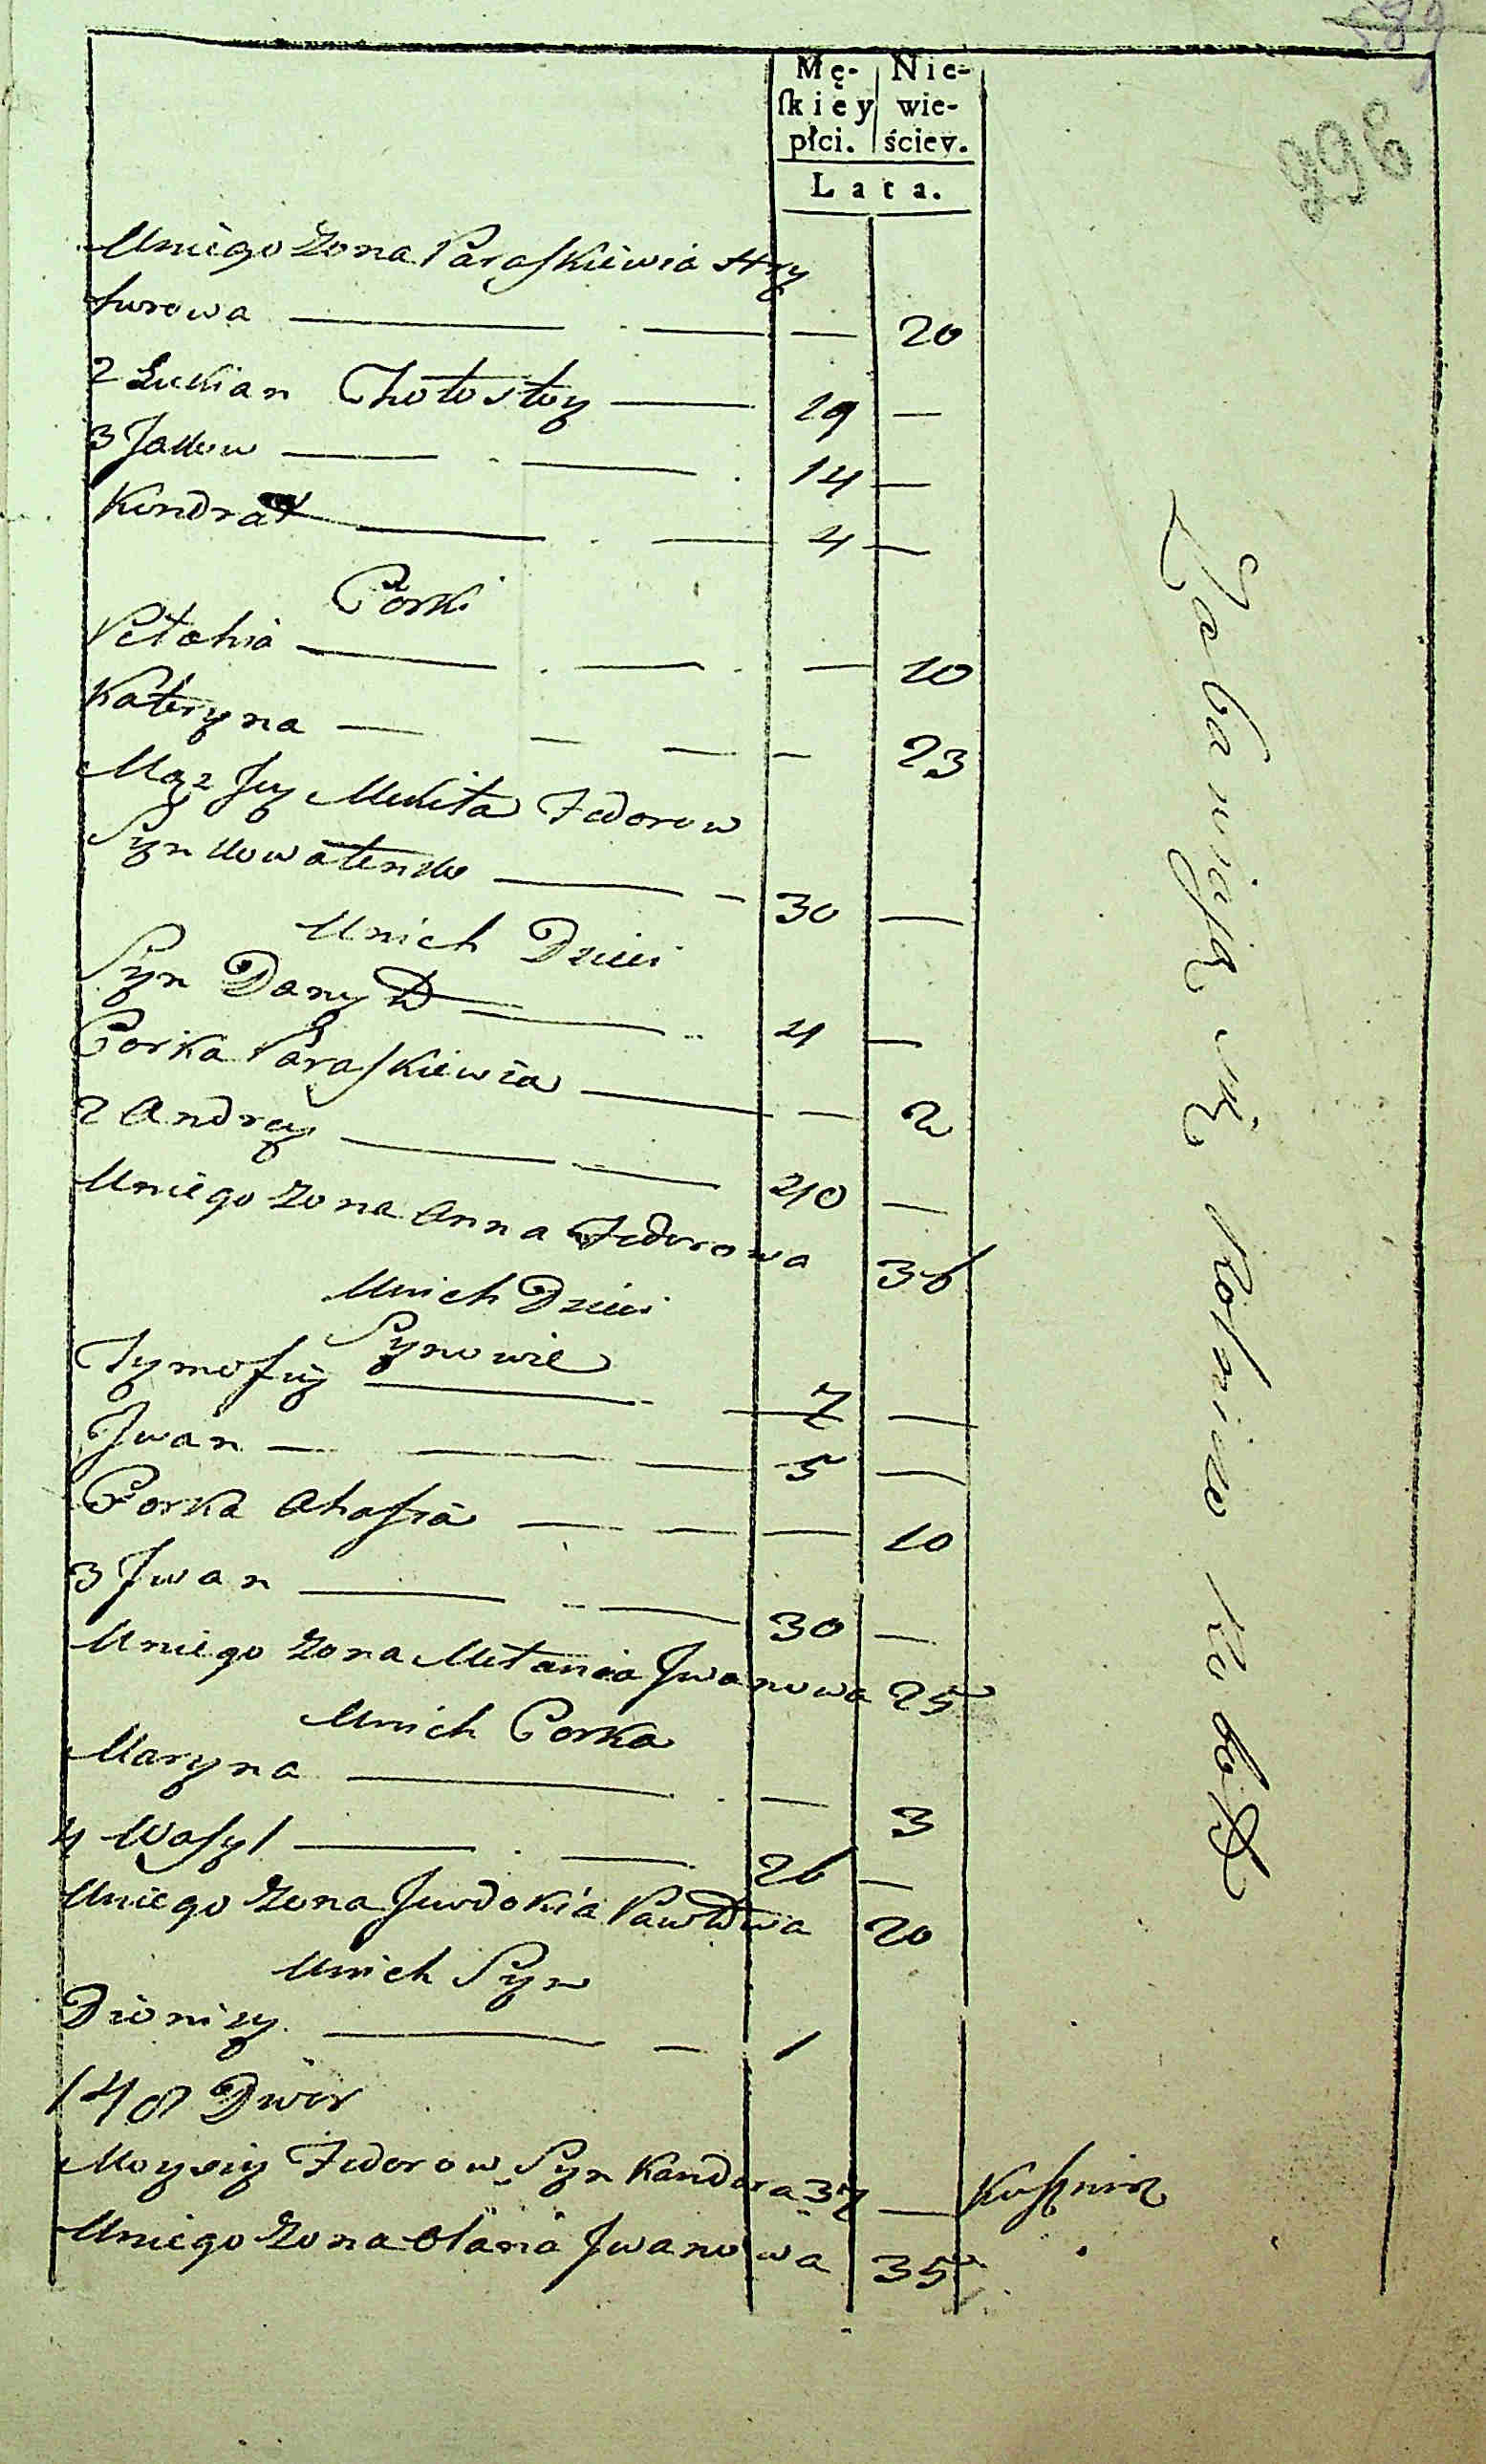 996
Mę- Nie-
ſkiey wie-
płci. ściey.
Lata.
Uniego Zona Paraſkiewia Hry
hurowa — — — 20
2 Łukian Chołostoy — 19 —
3 Jakow — — 14 —
Kondrat — — 4 —
Corki
Pełahia — — — 10
Kateryna — — — — 23
Mąz Jey Mikita Fedorow
Syn Kowalenko — — 30 —
Unich Dzieci
Syn Danyło — 4 —
Corka Paraſkiewia — — 2
2 Andrey — — 40 —
Uniego Zona Anna Fedorowa 36
Unich Dzieci
Synowie
Tymofiey — — 7 —
Jwan — — — 5 —
Corka Ahafia — — — 10
3 Jwan — — 30 —
Uniego Zona Mełania Jwanowa 25
Unich Corka
Maryna — — 3
4 Waſyl — — 26 —
Uniego Zona Juwdokia Pawłowa 20
Unich Syn
Dionizy — — 1
148 Dwor
Moysiey Fedorow Syn Kandora 37 — Kuſznierz
Uniego Zona Ołana Jwanowa 35
Zabawiaią się Rolniczo Robotą